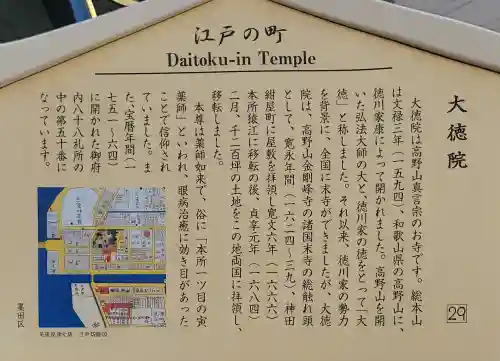 江戸の町
Daitoku-in Temple
大徳院
大徳院は高野山真言宗のお寺です。総本山
は文禄三年（一五九四）、和歌山県の高野山に、
徳川家康によって開かれました。高野山を開
いた弘法大師の大と、徳川家の徳をとって「大
徳」と称しました。それ以来、徳川家の勢力
を背景に、全国に末寺ができましたが、大徳
院は、高野山金剛峰寺の諸国末寺の総触れ頭
として、寛永年間（一六二四〜三九）、神田
紺屋町に屋敷を拝領し寛文六年（一六六六）
本所猿江に移転の後、貞享元年（一六八四）
二月、千二百坪の土地をこの地両国に拝領し、
移転しました。
本尊は薬師如来で、俗に「本所一ツ目の寅
薬師」といわれ、眼病治癒に効き目があった
ことで信仰され
ていました。ま
た、宝暦年間（一
七五一〜六四）
に開かれた御府
内八十八札所の
中の第五十番に
なっています。
29
墨田区